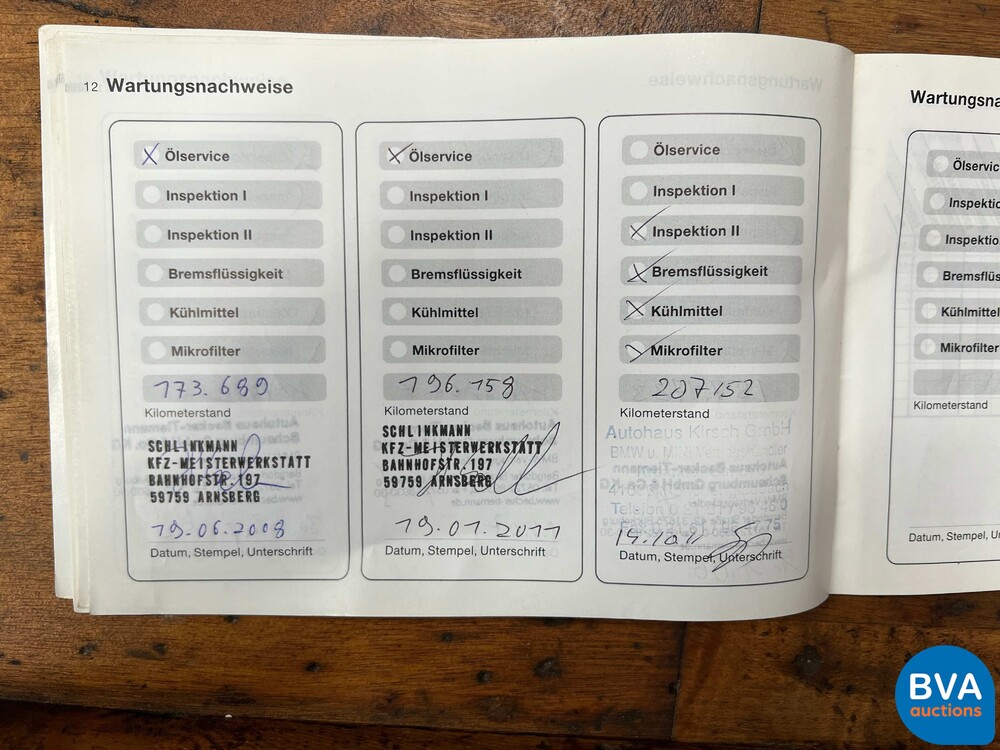 12 Wartungsnachweise
Ölservice
Inspektion I
Inspektion II
Bremsflüssigkeit
Kühlmittel
Mikrofilter
173.689
Kilometerstand
SCHLINKMANN
KFZ-MEISTERWERKSTATT
BAHNHOFSTR. 197
59759 ARNSBERG
19.06.2008
Datum, Stempel, Unterschrift
Ölservice
Inspektion I
Inspektion II
Bremsflüssigkeit
Kühlmittel
Mikrofilter
196.158
Kilometerstand
SCHLINKMANN
KFZ-MEISTERWERKSTATT
BAHNHOFSTR. 197
59759 ARNSBERG
19.01.2011
Datum, Stempel, Unterschrift
Ölservice
Inspektion I
Inspektion II
Bremsflüssigkeit
Kühlmittel
Mikrofilter
207152
Kilometerstand
Autohaus Kirsch GmbH
BMW u.
Telefon
Datum, Stempel, Unterschrift
Wartungsna
Ölservic
Inspektio
Inspektio
Bremsflüs
Kühlmittel
Mikrofilter
Kilometerstand
Datum, Stempel, Un
BVA
auctions